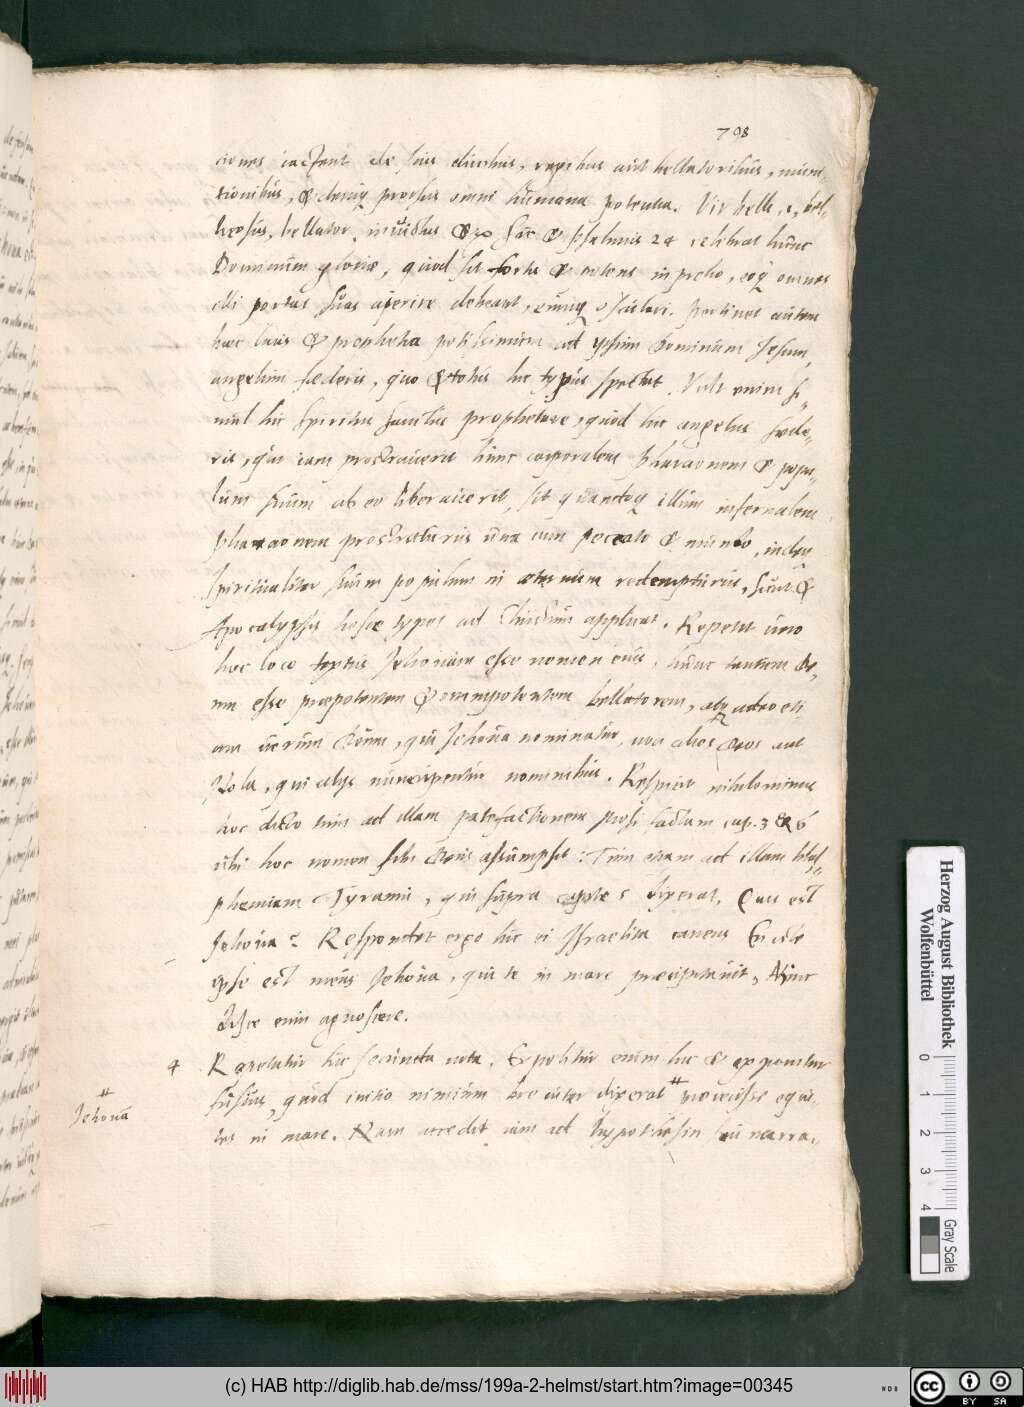 798
ciones iactent de suis ducibus, regibus aut bellatoribus, muni-
tionibus, & deniq prorsus omni humana potentia. Vir belli, i, bel-
licosus, bellator, invictus & sic & psalmus 24 celebrat hunc
Dominum gloriæ, quod sit fortis & potens in prelio, eoq omnes
illi portas suas aperire debeant, eumq osculari. Pertinet autem
haec laus & propheta potissimum ad ipsum Dominum Jesum,
angelum fœderis, quo & totus hic typus spectat. Vult enim si-
mul hic Spiritus sanctus prophetare, quod hic angelus fœde-
ris, qui iam prostraverit hunc corporalem Pharaonem & popu-
lum suum ab eo liberaverit, sit quandoq illum infernalem
Pharaonem prostraturus una cum peccato & mundo, indeq
spiritualiter suum populum in æternum redempturus, sicut &
Apocalypsis hosce typos ad Christum applicat. Repetit vero
hoc loco textus Jehovam esse nomen eius, hunc tantum De-
um esse præpotentem & omnipotentem bellatorem, atq adeo eti
am verum Deum, qui Jehova nominatur, non alios Deos aut
Idola, qui alijs nuncupentur nominibus. Respicit nihilominus
hoc dicto tum ad illam patefactionem Mosi factam cap. 3 & 6
ubi hoc nomen sibi Deus assumpsit: Tum etiam ad illam blas-
phemiam Tyranni, qui supra capite 5 dixerat, Quis est
Jehova? Respondet ergo hic ei Israelita canens En iste
ipse est meus Jehova, qui te in mare præcipitavit, Nunc
disce eum agnoscere.
4 Repetitur hic secunda nota. Expolitur enim hic & exponitur
fusius, quod initio nimium breviter dixerat # proiecisse equi-
tes in mare. Nam accedit iam ad hypothesin seu narra-
#
Jehova
Herzog August Bibliothek
Wolfenbüttel
0 1 2 3 4
Gray Scale
(c) HAB http://diglib.hab.de/mss/199a-2-helmst/start.htm?image=00345
cc BY SA